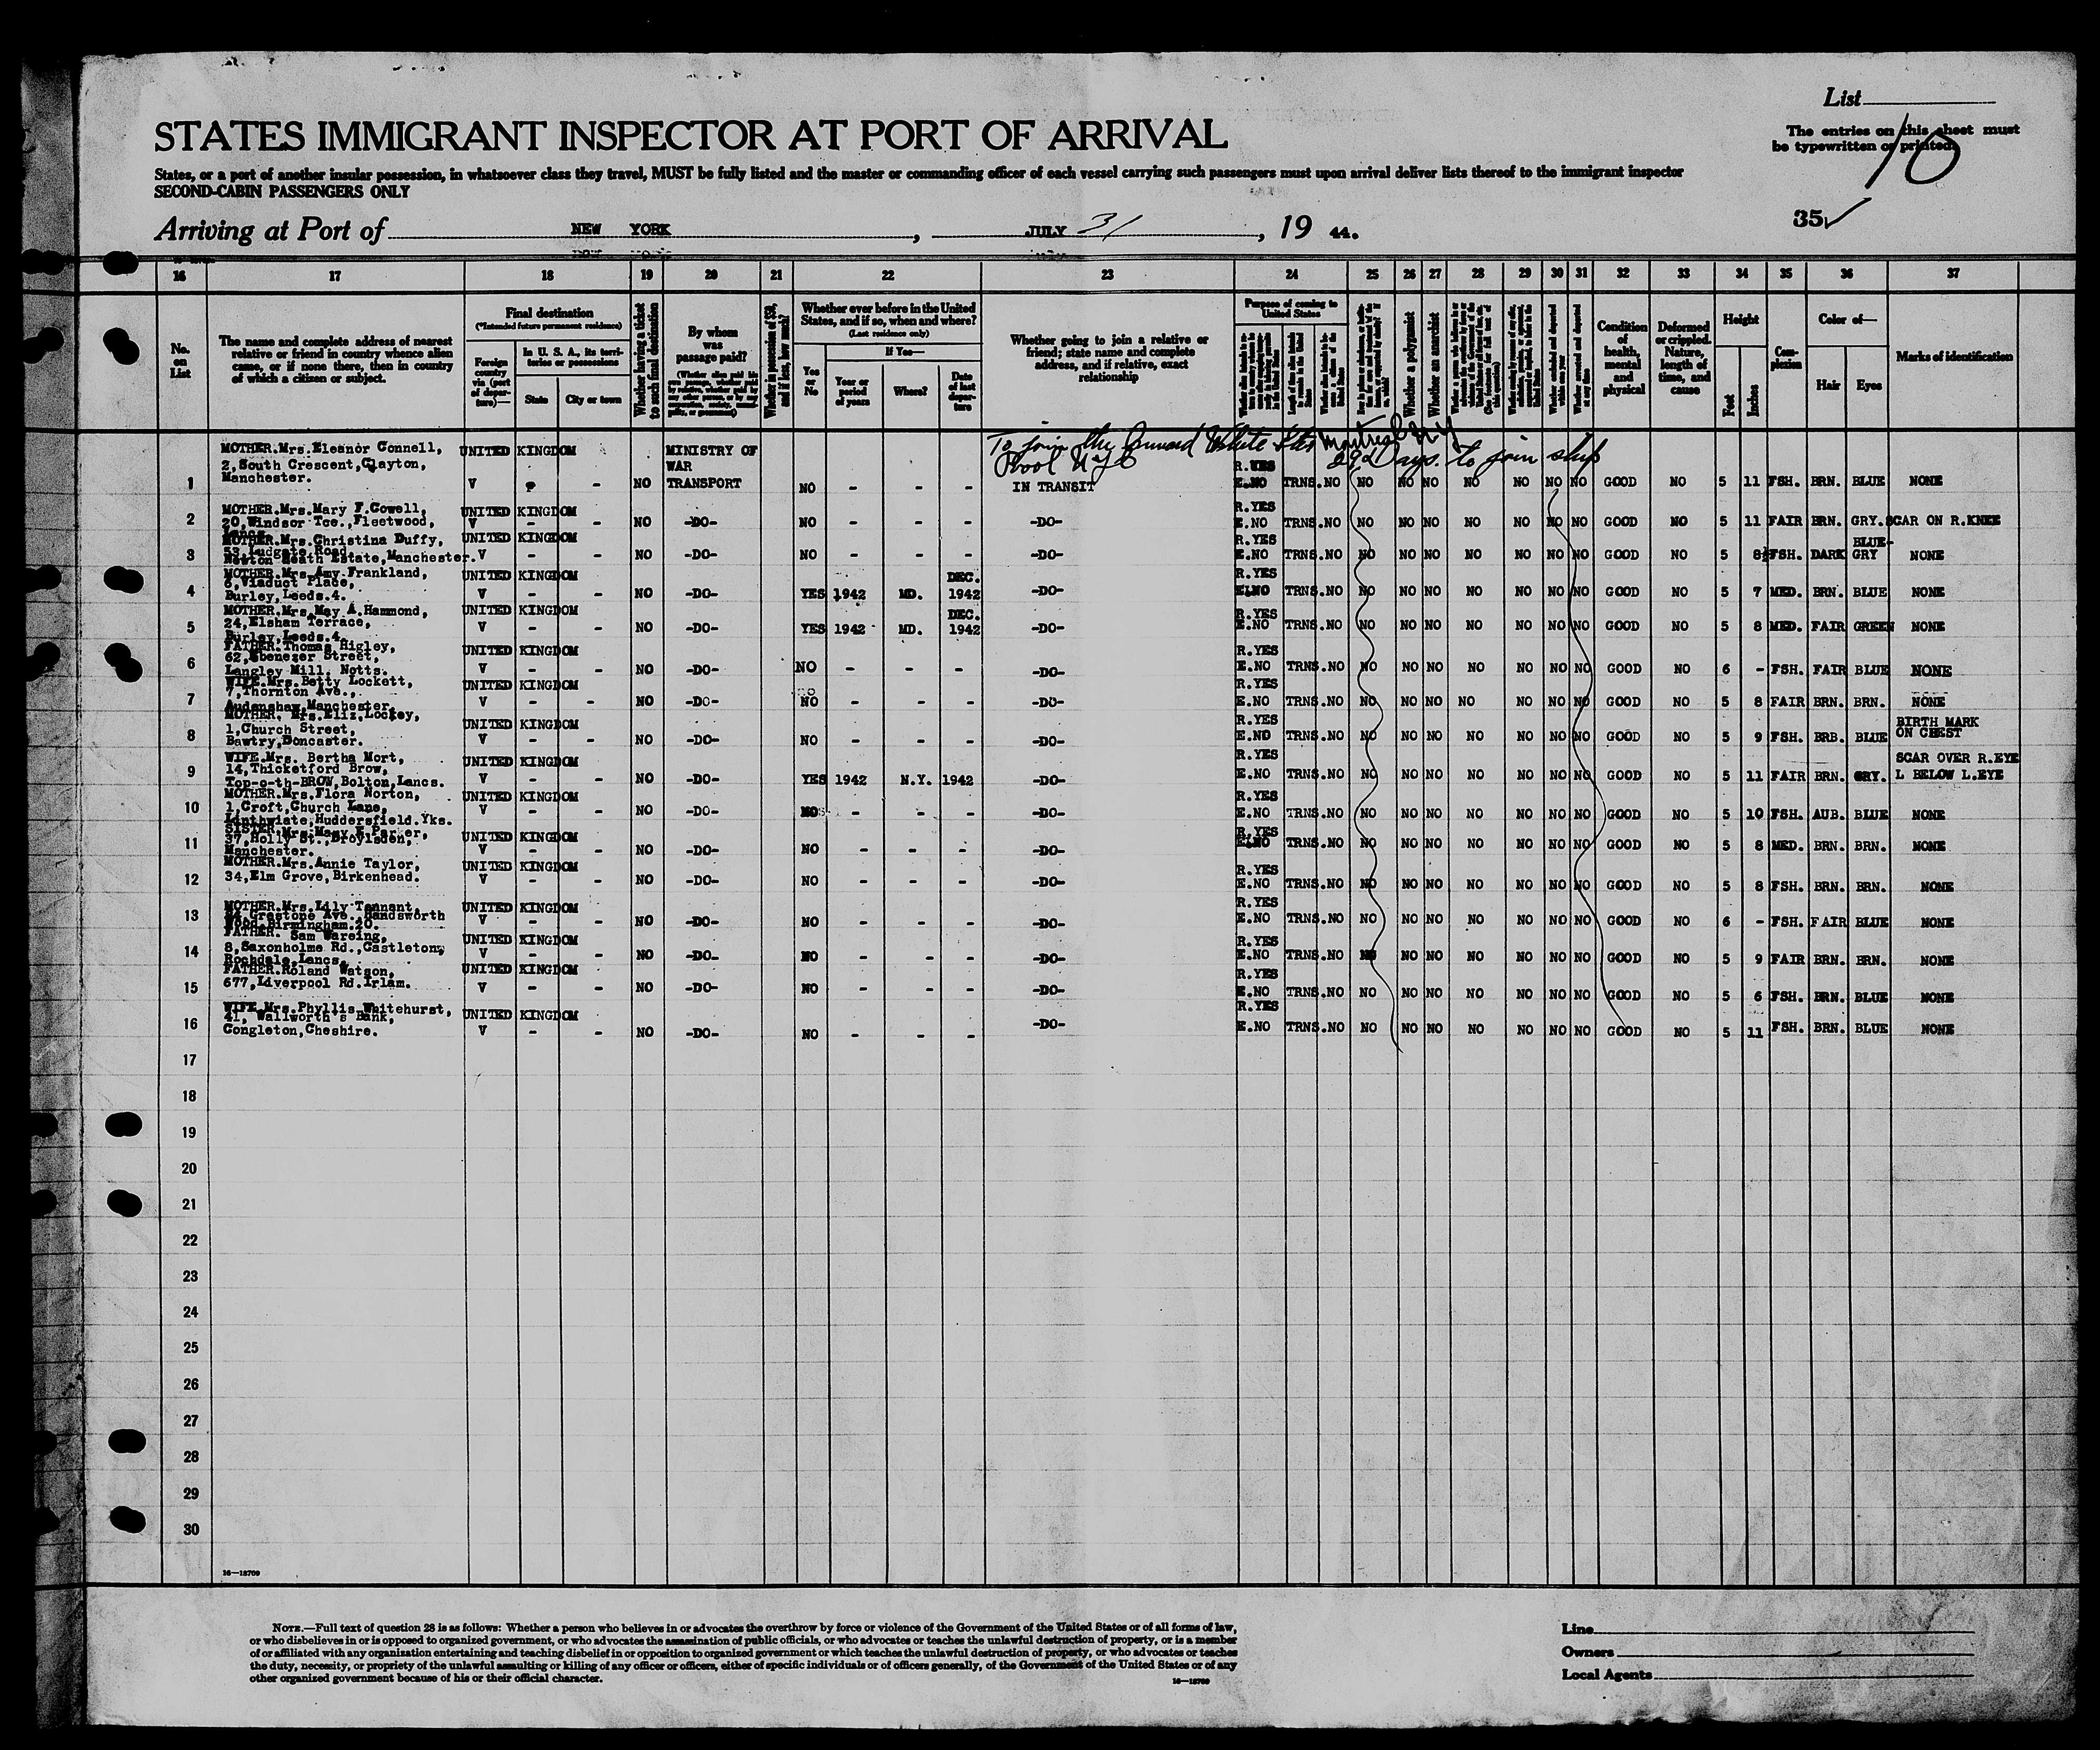 List
STATES IMMIGRANT INSPECTOR AT PORT OF ARRIVAL
The entries on this sheet must
be typewritten or printed.
10
States, or a port of another insular possession, in whatsoever class they travel, MUST be fully listed and the master or commanding officer of each vessel carrying such passengers must upon arrival deliver lists thereof to the immigrant inspector
SECOND-CABIN PASSENGERS ONLY
35✓
Arriving at Port of NEW YORK, JULY 31, 19 44.
16 17 18 19 20 21 22 23 24 25 26 27 28 29 30 31 32 33 34 35 36 37
No. on List
The name and complete address of nearest relative or friend in country whence alien came, or if none there, then in country of which a citizen or subject.
Final destination
(*Intended future permanent residence)
Foreign country via (port of departure)—
In U. S. A., its territories or possessions
State
City or town
Whether having a ticket to such final destination
By whom was passage paid?
Whether in possession of $50, and if less, how much?
Whether ever before in the United States, and if so, when and where?
(Last residence only)
Yes or No
If Yes—
Year or period of years
Where?
Date of last departure
Whether going to join a relative or friend; state name and complete address, and if relative, exact relationship
Purpose of coming to United States
Whether a polygamist
Whether an anarchist
Condition of health, mental and physical
Deformed or crippled. Nature, length of time, and cause
Height
Feet
Inches
Complexion
Color of—
Hair
Eyes
Marks of identification
To join the Cunard White Star Montreal
Pool 29 Days. to join ship
1 MOTHER.Mrs.Eleanor Connell, 2,South Crescent,Clayton, Manchester. UNITED KINGDOM V - NO MINISTRY OF WAR TRANSPORT NO - - - IN TRANSIT R.YES E.NO TRNS.NO NO NO NO NO NO NO NO GOOD NO 5 11 FSH. BRN. BLUE NONE
2 MOTHER.Mrs.Mary F.Cowell, 20,Windsor Tce.,Fleetwood, UNITED KINGDOM V - - NO -DO- NO - - - -DO- R.YES E.NO TRNS.NO NO NO NO NO NO NO NO GOOD NO 5 11 FAIR BRN. GRY. SCAR ON R.KNEE
3 MOTHER.Mrs.Christina Duffy, 53,Ludgate Road, Newton Heath Estate,Manchester. UNITED KINGDOM V - - NO -DO- NO - - - -DO- R.YES E.NO TRNS.NO NO NO NO NO NO NO NO GOOD NO 5 8½ FSH. DARK BLUE-GRY NONE
4 MOTHER.Mrs.Amy Frankland, 6,Viaduct Place, Burley,Leeds.4. UNITED KINGDOM V - - NO -DO- YES 1942 MD. DEC. 1942 -DO- R.YES E.NO TRNS.NO NO NO NO NO NO NO NO GOOD NO 5 7 MED. BRN. BLUE NONE
5 MOTHER.Mrs.May A.Hammond, 24,Elsham Terrace, Burley,Leeds.4. UNITED KINGDOM V - - NO -DO- YES 1942 MD. DEC. 1942 -DO- R.YES E.NO TRNS.NO NO NO NO NO NO NO NO GOOD NO 5 8 MED. FAIR GREEN NONE
6 FATHER.Thomas Higley, 62,Ebenezer Street, Langley Mill. Notts. UNITED KINGDOM V - - NO -DO- NO - - - -DO- R.YES E.NO TRNS.NO NO NO NO NO NO NO NO GOOD NO 6 - FSH. FAIR BLUE NONE
7 WIFE.Mrs.Betty Lockett, 7,Thornton Ave., Audenshaw,Manchester. UNITED KINGDOM V - - NO -DO- NO - - - -DO- R.YES E.NO TRNS.NO NO NO NO NO NO NO NO GOOD NO 5 8 FAIR BRN. BRN. NONE
8 MOTHER. Mrs.Eliz.Lockey, 1,Church Street, Bawtry,Doncaster. UNITED KINGDOM V - - NO -DO- NO - - - -DO- R.YES E.NO TRNS.NO NO NO NO NO NO NO NO GOOD NO 5 9 FSH. BRB. BLUE BIRTH MARK ON CHEST
9 WIFE.Mrs. Bertha Mort, 14,Thicketford Brow, Top-o-th-BROW,Bolton,Lancs. UNITED KINGDOM V - - NO -DO- YES 1942 N.Y. 1942 -DO- R.YES E.NO TRNS.NO NO NO NO NO NO NO NO GOOD NO 5 11 FAIR BRN. GRY. SCAR OVER R.EYE L BELOW L.EYE
10 MOTHER.Mrs.Flora Norton, 1,Croft,Church Lane, Linthwiate,Huddersfield.Yks. UNITED KINGDOM V - - NO -DO- NO - - - -DO- R.YES E.NO TRNS.NO NO NO NO NO NO NO NO GOOD NO 5 10 FSH. AUB. BLUE NONE
11 SISTER.Mrs.Mary E.Parker, 37,Holly St.,Droylsden, Manchester. UNITED KINGDOM V - - NO -DO- NO - - - -DO- R.YES E.NO TRNS.NO NO NO NO NO NO NO NO GOOD NO 5 8 MED. BRN. BRN. NONE
12 MOTHER.Mrs.Annie Taylor, 34,Elm Grove,Birkenhead. UNITED KINGDOM V - - NO -DO- NO - - - -DO- R.YES E.NO TRNS.NO NO NO NO NO NO NO NO GOOD NO 5 8 FSH. BRN. BRN. NONE
13 MOTHER.Mrs.Lily Tennant, Grestone Ave.,Handsworth Wood,Birmingham.20. UNITED KINGDOM V - - NO -DO- NO - - - -DO- R.YES E.NO TRNS.NO NO NO NO NO NO NO NO GOOD NO 6 - FSH. FAIR BLUE NONE
14 FATHER. Sam Wareing, 8,Saxonholme Rd.,Castleton, Rochdale,Lancs. UNITED KINGDOM V - - NO -DO- NO - - - -DO- R.YES E.NO TRNS.NO NO NO NO NO NO NO NO GOOD NO 5 9 FAIR BRN. BRN. NONE
15 FATHER.Roland Watson, 677,Liverpool Rd.Irlam. UNITED KINGDOM V - - NO -DO- NO - - - -DO- R.YES E.NO TRNS.NO NO NO NO NO NO NO NO GOOD NO 5 6 FSH. BRN. BLUE NONE
16 WIFE.Mrs.Phyllis Whitehurst, 41, Wallworth's Bank, Congleton,Cheshire. UNITED KINGDOM V - - NO -DO- NO - - - -DO- R.YES E.NO TRNS.NO NO NO NO NO NO NO NO GOOD NO 5 11 FSH. BRN. BLUE NONE
17
18
19
20
21
22
23
24
25
26
27
28
29
30
16—18709
NOTE.—Full text of question 28 is as follows: Whether a person who believes in or advocates the overthrow by force or violence of the Government of the United States or of all forms of law,
or who disbelieves in or is opposed to organized government, or who advocates the assassination of public officials, or who advocates or teaches the unlawful destruction of property, or is a member
of or affiliated with any organization entertaining and teaching disbelief in or opposition to organized government or which teaches the unlawful destruction of property, or who advocates or teaches
the duty, necessity, or propriety of the unlawful assaulting or killing of any officer or officers, either of specific individuals or of officers generally, of the Government of the United States or of any
other organized government because of his or their official character.
16—18709
Line
Owners
Local Agents